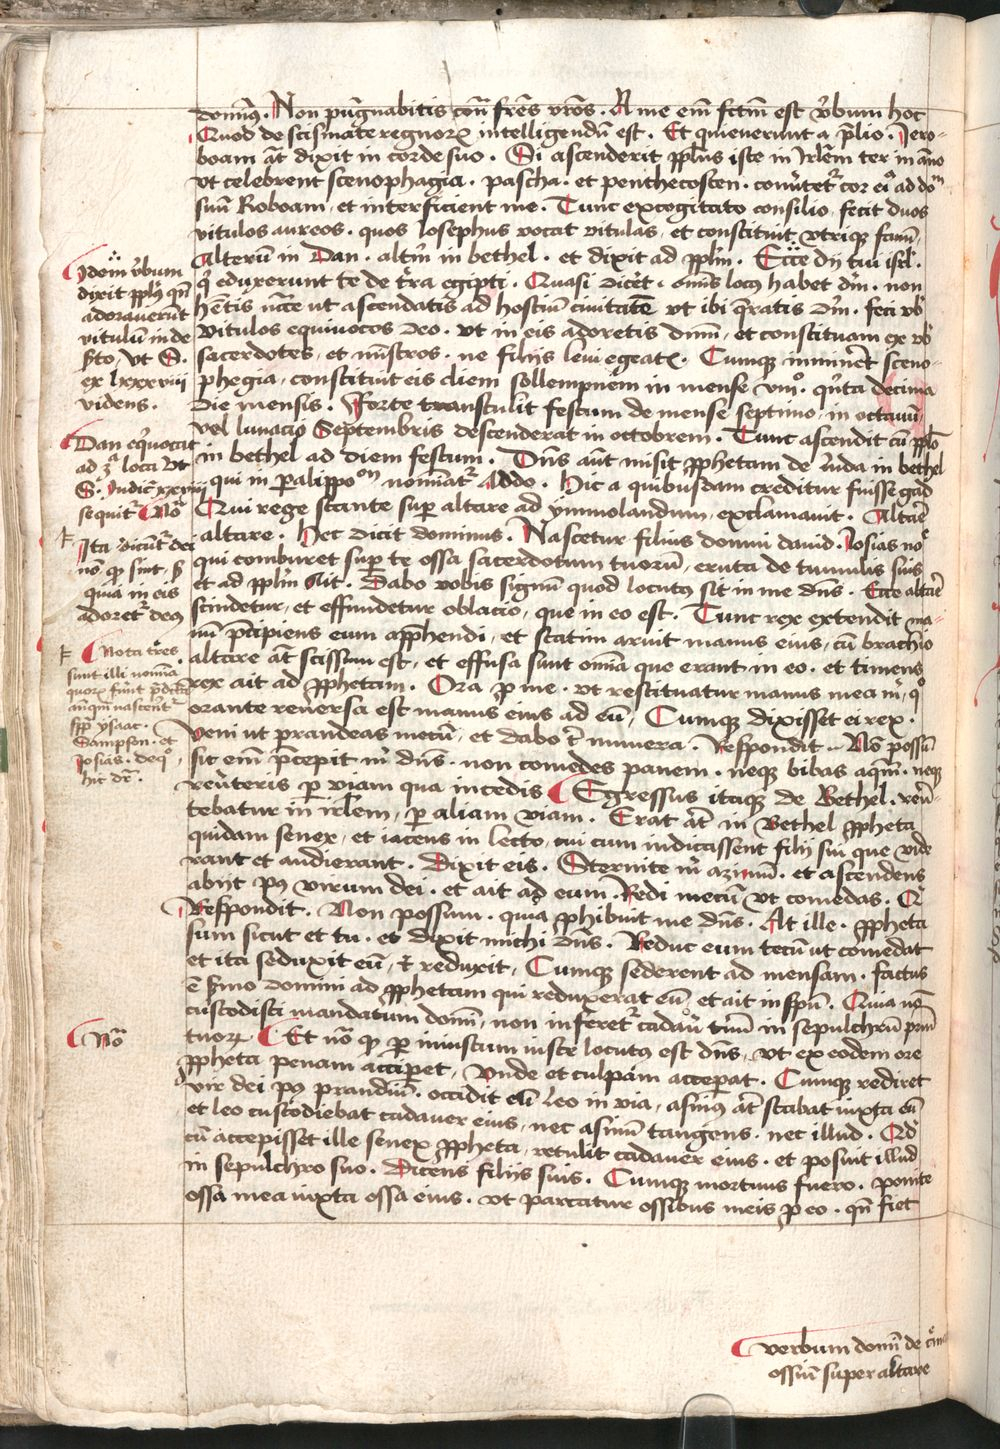 dominus. Non pugnabitis contra fratres vestros. A me enim factum est verbum hoc
Quod de scismate regnorum intelligendum est. Et quieverunt a prelio. Iero-
boam autem dixit in corde suo. Si ascenderit populus iste in Irlem ter in anno
ut celebrent scenophagia. pascha. et penthecosten. convertetur cor eius ad dom
suum Roboam, et interficient me. Tunc excogitato consilio, fecit duos
vitulos aureos. quos Iosephus vocat vitulas, et constituit utrique fanum,
Alterum in Dan. alterum in bethel. et dixit ad populum. Ecce dij tui isrl.
qui eduxerunt te de terra egipti. Quasi diceret. omnis locus habet deum. non
habentis necesse ut ascendatis ad hostium civitatem ut ibi queratis deum. feci vobis
vitulos equivocos deo. ut in eis adoretis dominum, et constituam ex vobis
sacerdotes, et ministros. ne filijs levi egeatis. Cumque immineret sceno-
phegia, constituit eis diem sollempnem in mense viiio. quinta decima
die mensis. Forte transtulit festum de mense septimo, in octavum,
vel lunacio Septembris descenderat in octobrem. Tunc ascendit cum populo
in bethel ad diem festum. Dominus autem misit prophetam de iuda in bethel
qui in paralippomenon nominatur Addo. Hic a quibusdam creditur fuisse gad
Qui rege stante super altare ad ymmolandum, exclamavit. Altare
altare. Hec dicit dominus. Nascetur filius domui david. Iosias nomine
qui comburet super te ossa sacerdotum tuorum, eruta de tumulis suis
et ad populum ait. Dabo vobis signum quod locutus sit in me dominus. Ecce altare
scindetur, et effundetur oblacio, que in eo est. Tunc rex extendit ma-
num precipiens eum apprehendi, et statim aruit manus eius, cum brachio
altare autem scissum est, et effusa sunt omnia que erant in eo. et timens
rex ait ad prophetam. Ora pro me. ut restituatur manus mea mihi, quo
orante reversa est manus eius ad eum, Cumque dixisset ei rex.
Veni ut prandeas mecum, et dabo tibi munera. Respondit. Non possum
sic enim precepit mihi dominus. non comedes panem. neque bibas aquam. neque
reverteris per viam qua incedis Egressus itaque de Bethel. rever-
tebatur in irlem, per aliam viam. Erat autem in Bethel propheta
quidam senex, et iacens in lecto, cui cum indicassent filij sui que vide
rant et audierant. Dixit eis. Sternite mihi azinum. et ascendens
abijt post virum dei. et ait ad eum. Redi mecum ut comedas. Qui
Respondit. Non possum. quia prohibuit me dominus. At ille. propheta
sum sicut et tu. et dixit michi dominus. Reduc eum tecum ut comedat
et ita seduxit eum, et reduxit, Cumque sederent ad mensam. factus
est sermo domini ad prophetam qui reduxerat eum, et ait in spiritu. Quia non
custodisti mandatum domini, non inferetur cadaver tuum in sepulchrum patrum
tuorum. Et nota quod per iniustum iuste locutus est dominus, ut ex eodem ore
propheta penam acciperet, unde et culpam acceperat. Cumque rediret
vir dei post prandium. occidit eum Leo in via, asinus autem stabat iuxta eum
et leo custodiebat cadaver eius, nec asinum tangens. nec illud. Quod
cum accepisset ille senex propheta, retulit cadaver eius. et posuit illud
in sepulchro suo. Dicens filijs suis. Cumque mortuus fuero. ponite
ossa mea iuxta ossa eius. ut parcatur ossibus meis pro eo. quando fiet
Idem verbum
dixit populus quando
adoraverunt
vitulum in de
serto, ut S.
ex lxxxviii
videns.
Dan equivocat
ad 3a loca ut
S. Iudic xxviii
sequitur Nota
Ita dicuntur dei
non quod sint, sed
quia in eis
adoretur deus
Nota tres
sunt illi nomina
quorum fiunt predicta
antequam nascerentur
scilicet ysaac.
Sampson. et
Iosias. de quo
hic dicitur.
Nota
verbum domini de
ossium super altare